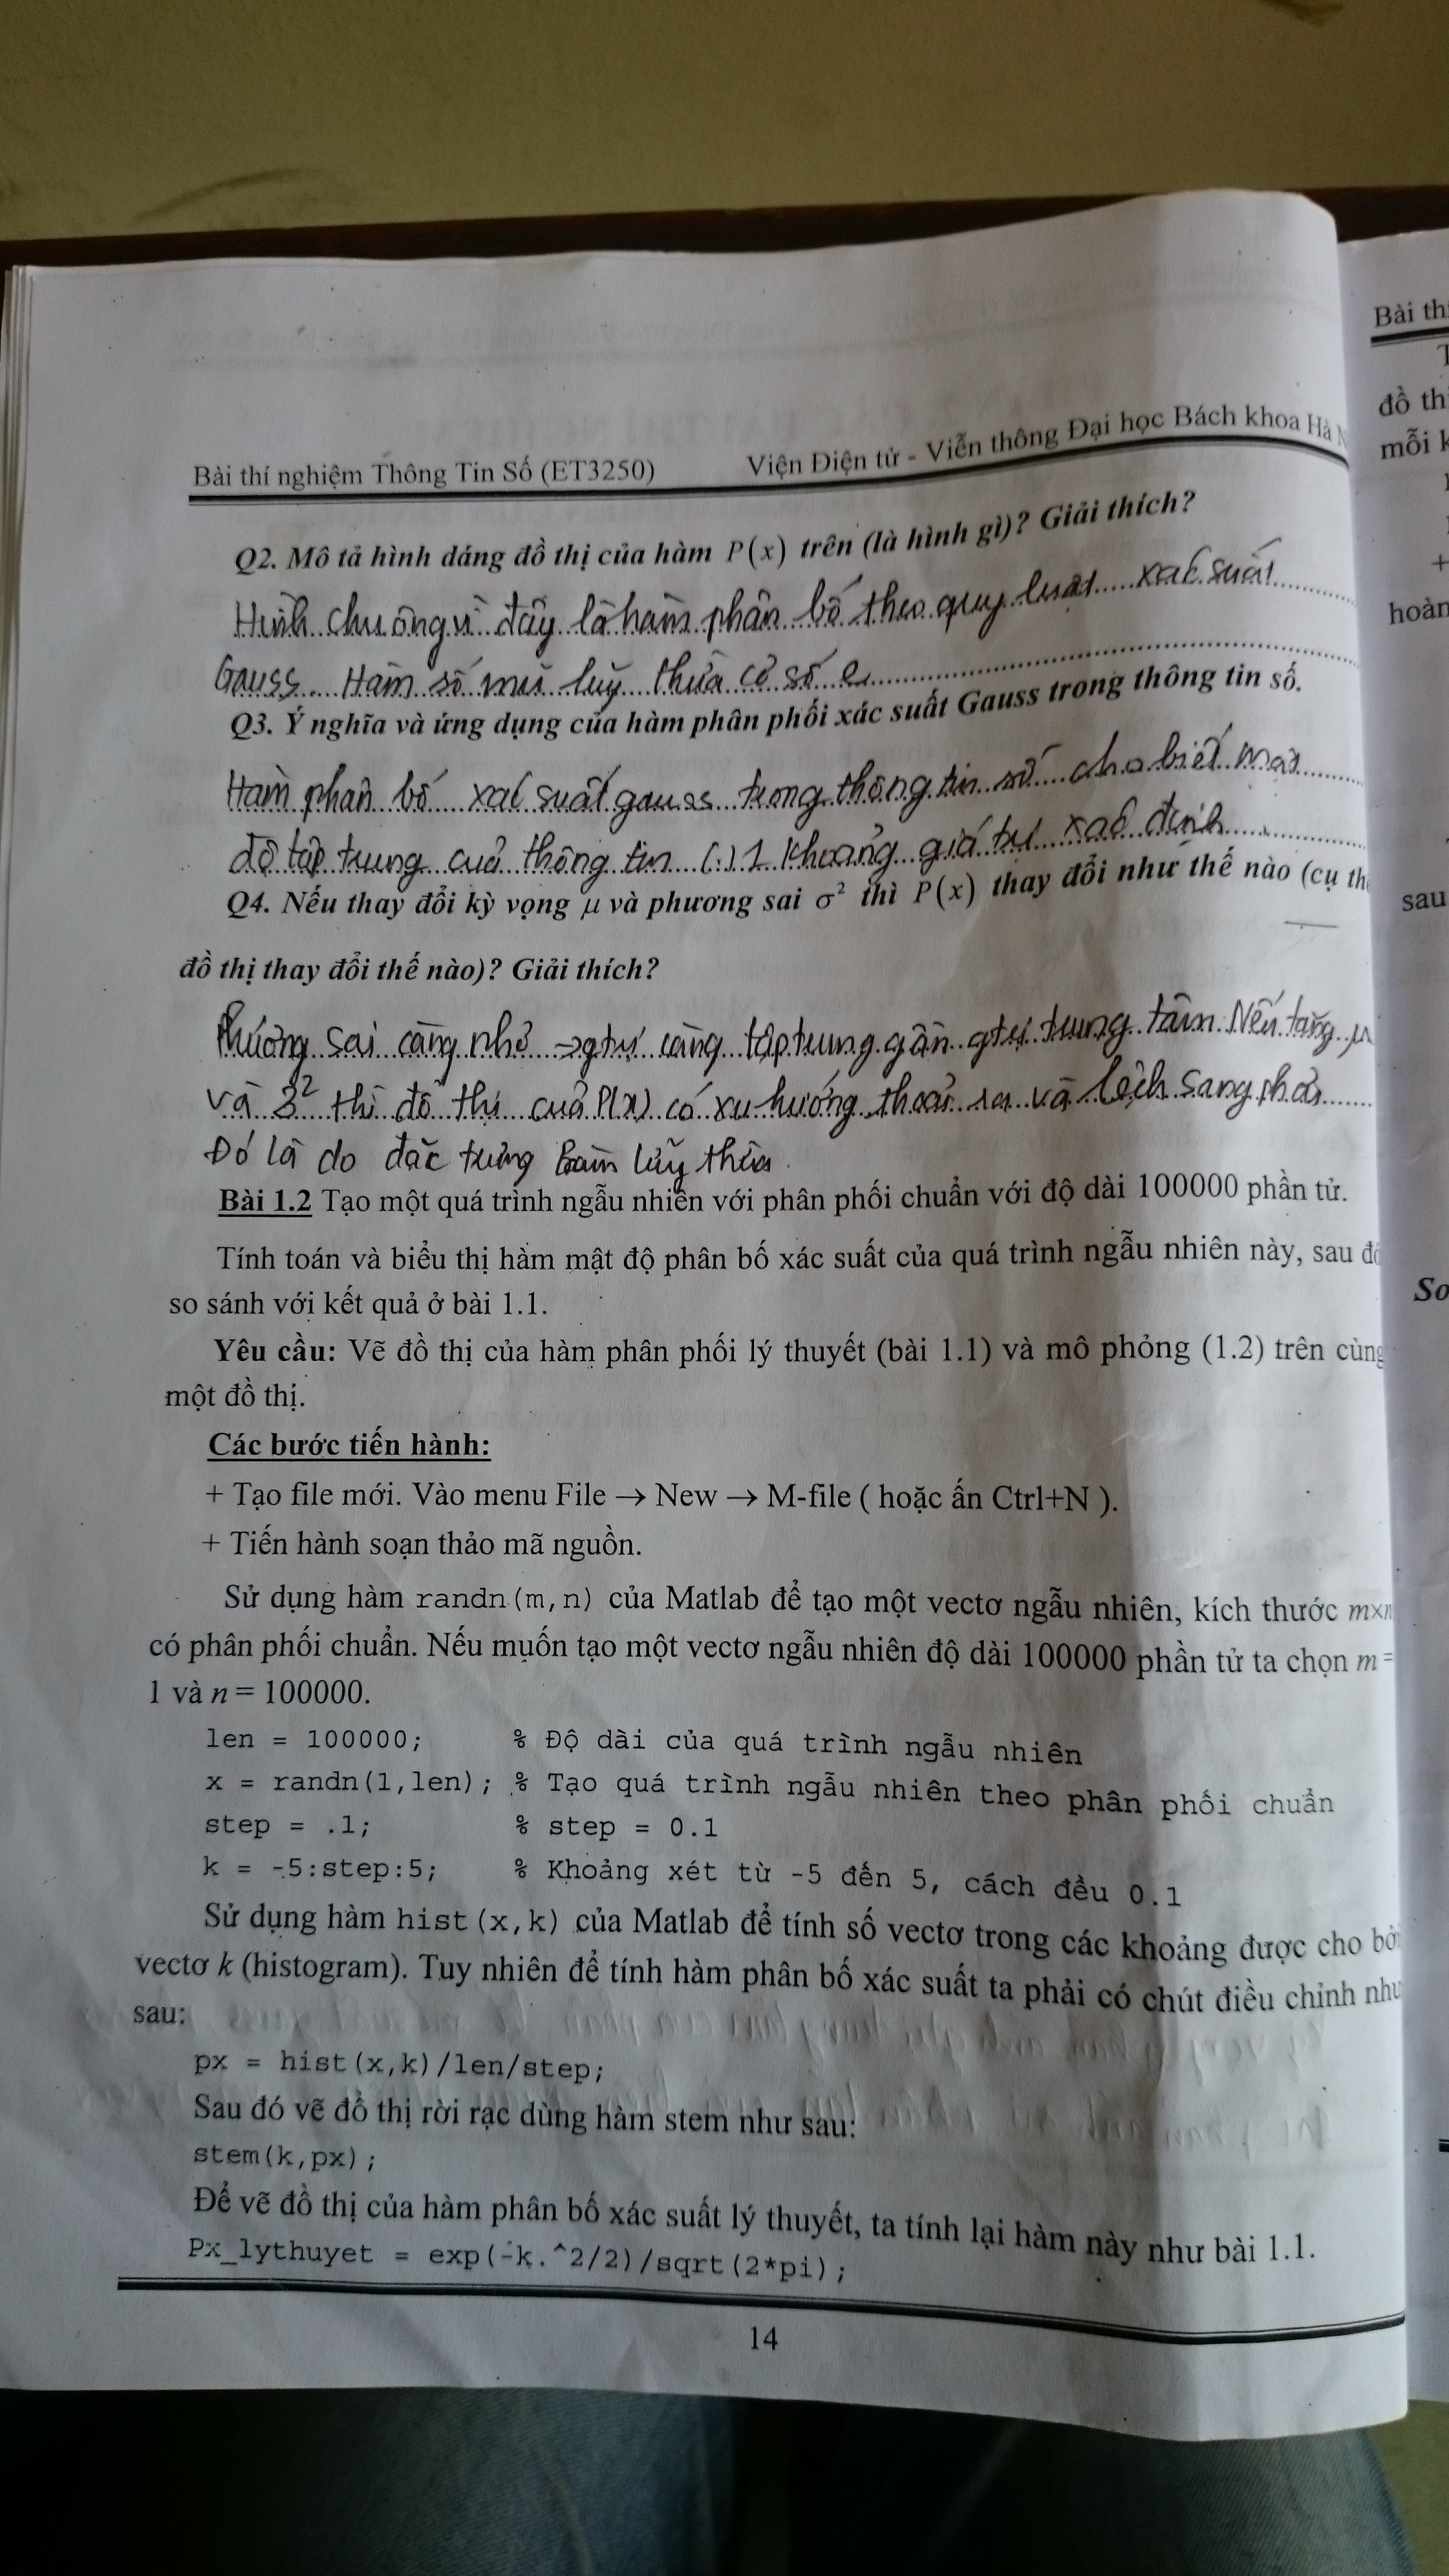 Bài thí nghiệm Thông Tin Số (ET3250) Viện Điện tử - Viễn thông Đại học Bách khoa Hà
Q2. Mô tả hình dáng đồ thị của hàm P(x) trên (là hình gì)? Giải thích?
Hình chuông vì đây là hàm phân bố theo quy luật xác suất
Gauss. Hàm số mũ luỹ thừa cơ số e
Q3. Ý nghĩa và ứng dụng của hàm phân phối xác suất Gauss trong thông tin số.
Hàm phân bố xác suất gauss trong thông tin số cho biết mật
độ tập trung của thông tin (.) 1 khoảng giá trị xác định
Q4. Nếu thay đổi kỳ vọng μ và phương sai σ² thì P(x) thay đổi như thế nào (cụ th
đồ thị thay đổi thế nào)? Giải thích?
Phương sai càng nhỏ → gtrị càng tập trung gần gtrị trung tâm. Nếu tăng μ
và 2 thì đồ thị của P(x) có xu hướng thoải ra và lệch sang phải
Đó là do đặc trưng hàm lũy thừa.
Bài 1.2 Tạo một quá trình ngẫu nhiên với phân phối chuẩn với độ dài 100000 phần tử.
Tính toán và biểu thị hàm mật độ phân bố xác suất của quá trình ngẫu nhiên này, sau đó
so sánh với kết quả ở bài 1.1.
Yêu cầu: Vẽ đồ thị của hàm phân phối lý thuyết (bài 1.1) và mô phỏng (1.2) trên cùng
một đồ thị.
Các bước tiến hành:
+ Tạo file mới. Vào menu File → New → M-file ( hoặc ấn Ctrl+N ).
+ Tiến hành soạn thảo mã nguồn.
Sử dụng hàm randn(m,n) của Matlab để tạo một vectơ ngẫu nhiên, kích thước m×n
có phân phối chuẩn. Nếu muốn tạo một vectơ ngẫu nhiên độ dài 100000 phần tử ta chọn m =
1 và n = 100000.
len = 100000; % Độ dài của quá trình ngẫu nhiên
x = randn(1,len); % Tạo quá trình ngẫu nhiên theo phân phối chuẩn
step = .1; % step = 0.1
k = -5:step:5; % Khoảng xét từ -5 đến 5, cách đều 0.1
Sử dụng hàm hist(x,k) của Matlab để tính số vectơ trong các khoảng được cho bởi
vectơ k (histogram). Tuy nhiên để tính hàm phân bố xác suất ta phải có chút điều chỉnh như
sau:
px = hist(x,k)/len/step;
Sau đó vẽ đồ thị rời rạc dùng hàm stem như sau:
stem(k,px);
Để vẽ đồ thị của hàm phân bố xác suất lý thuyết, ta tính lại hàm này như bài 1.1.
Px_lythuyet = exp(-k.^2/2)/sqrt(2*pi);
14
Bài th
đồ th
mỗi k
+
hoàn
sau
So